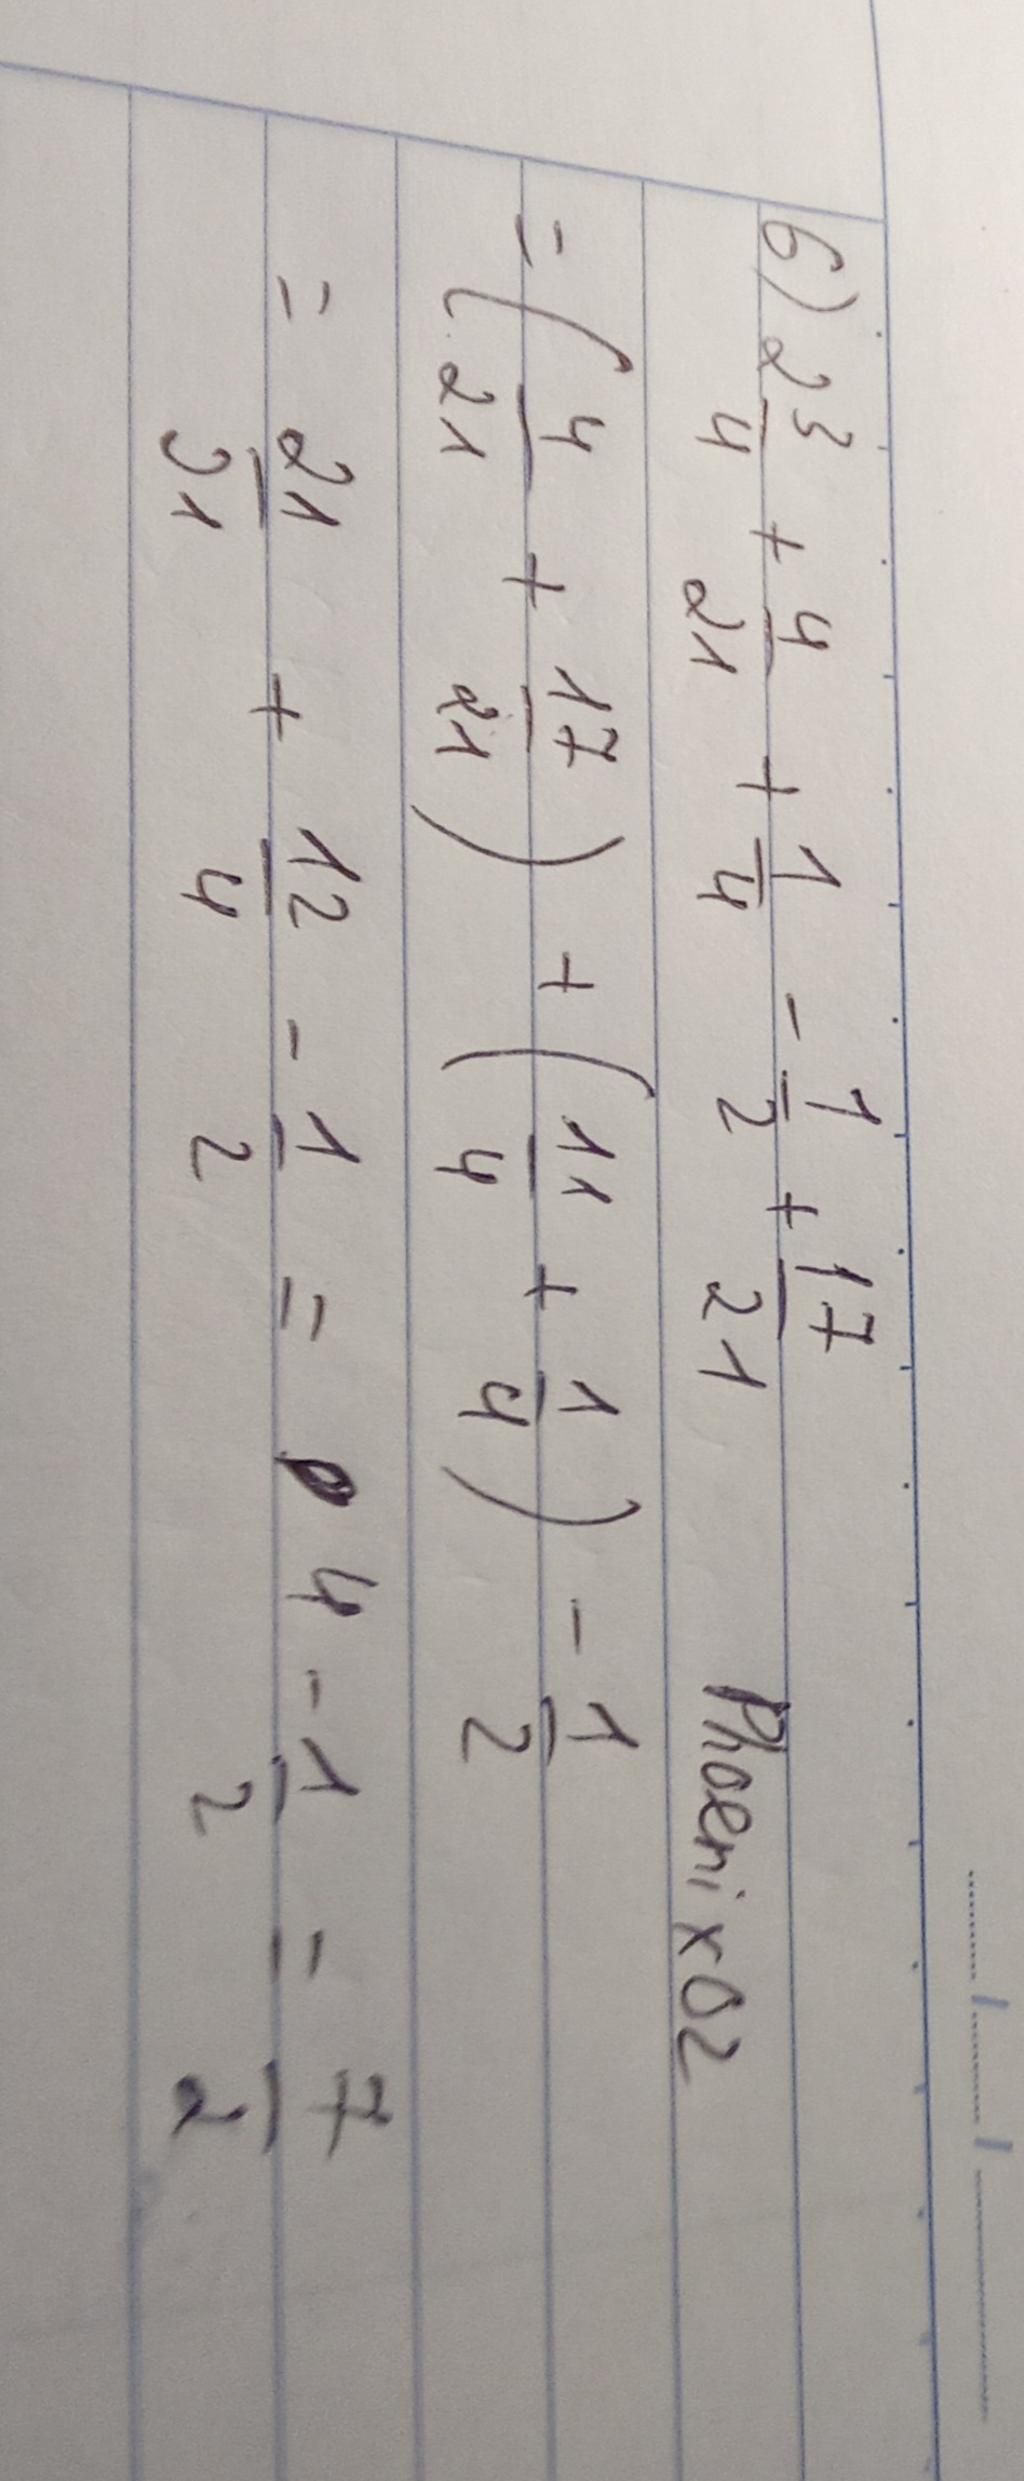 6) 2 3/4 + 4/21 + 1/4 - 1/2 + 17/21 Phoenix02
= (4/21 + 17/21) + (11/4 + 1/4) - 1/2
= 21/21 + 12/4 - 1/2 = 4 - 1/2 = 7/2